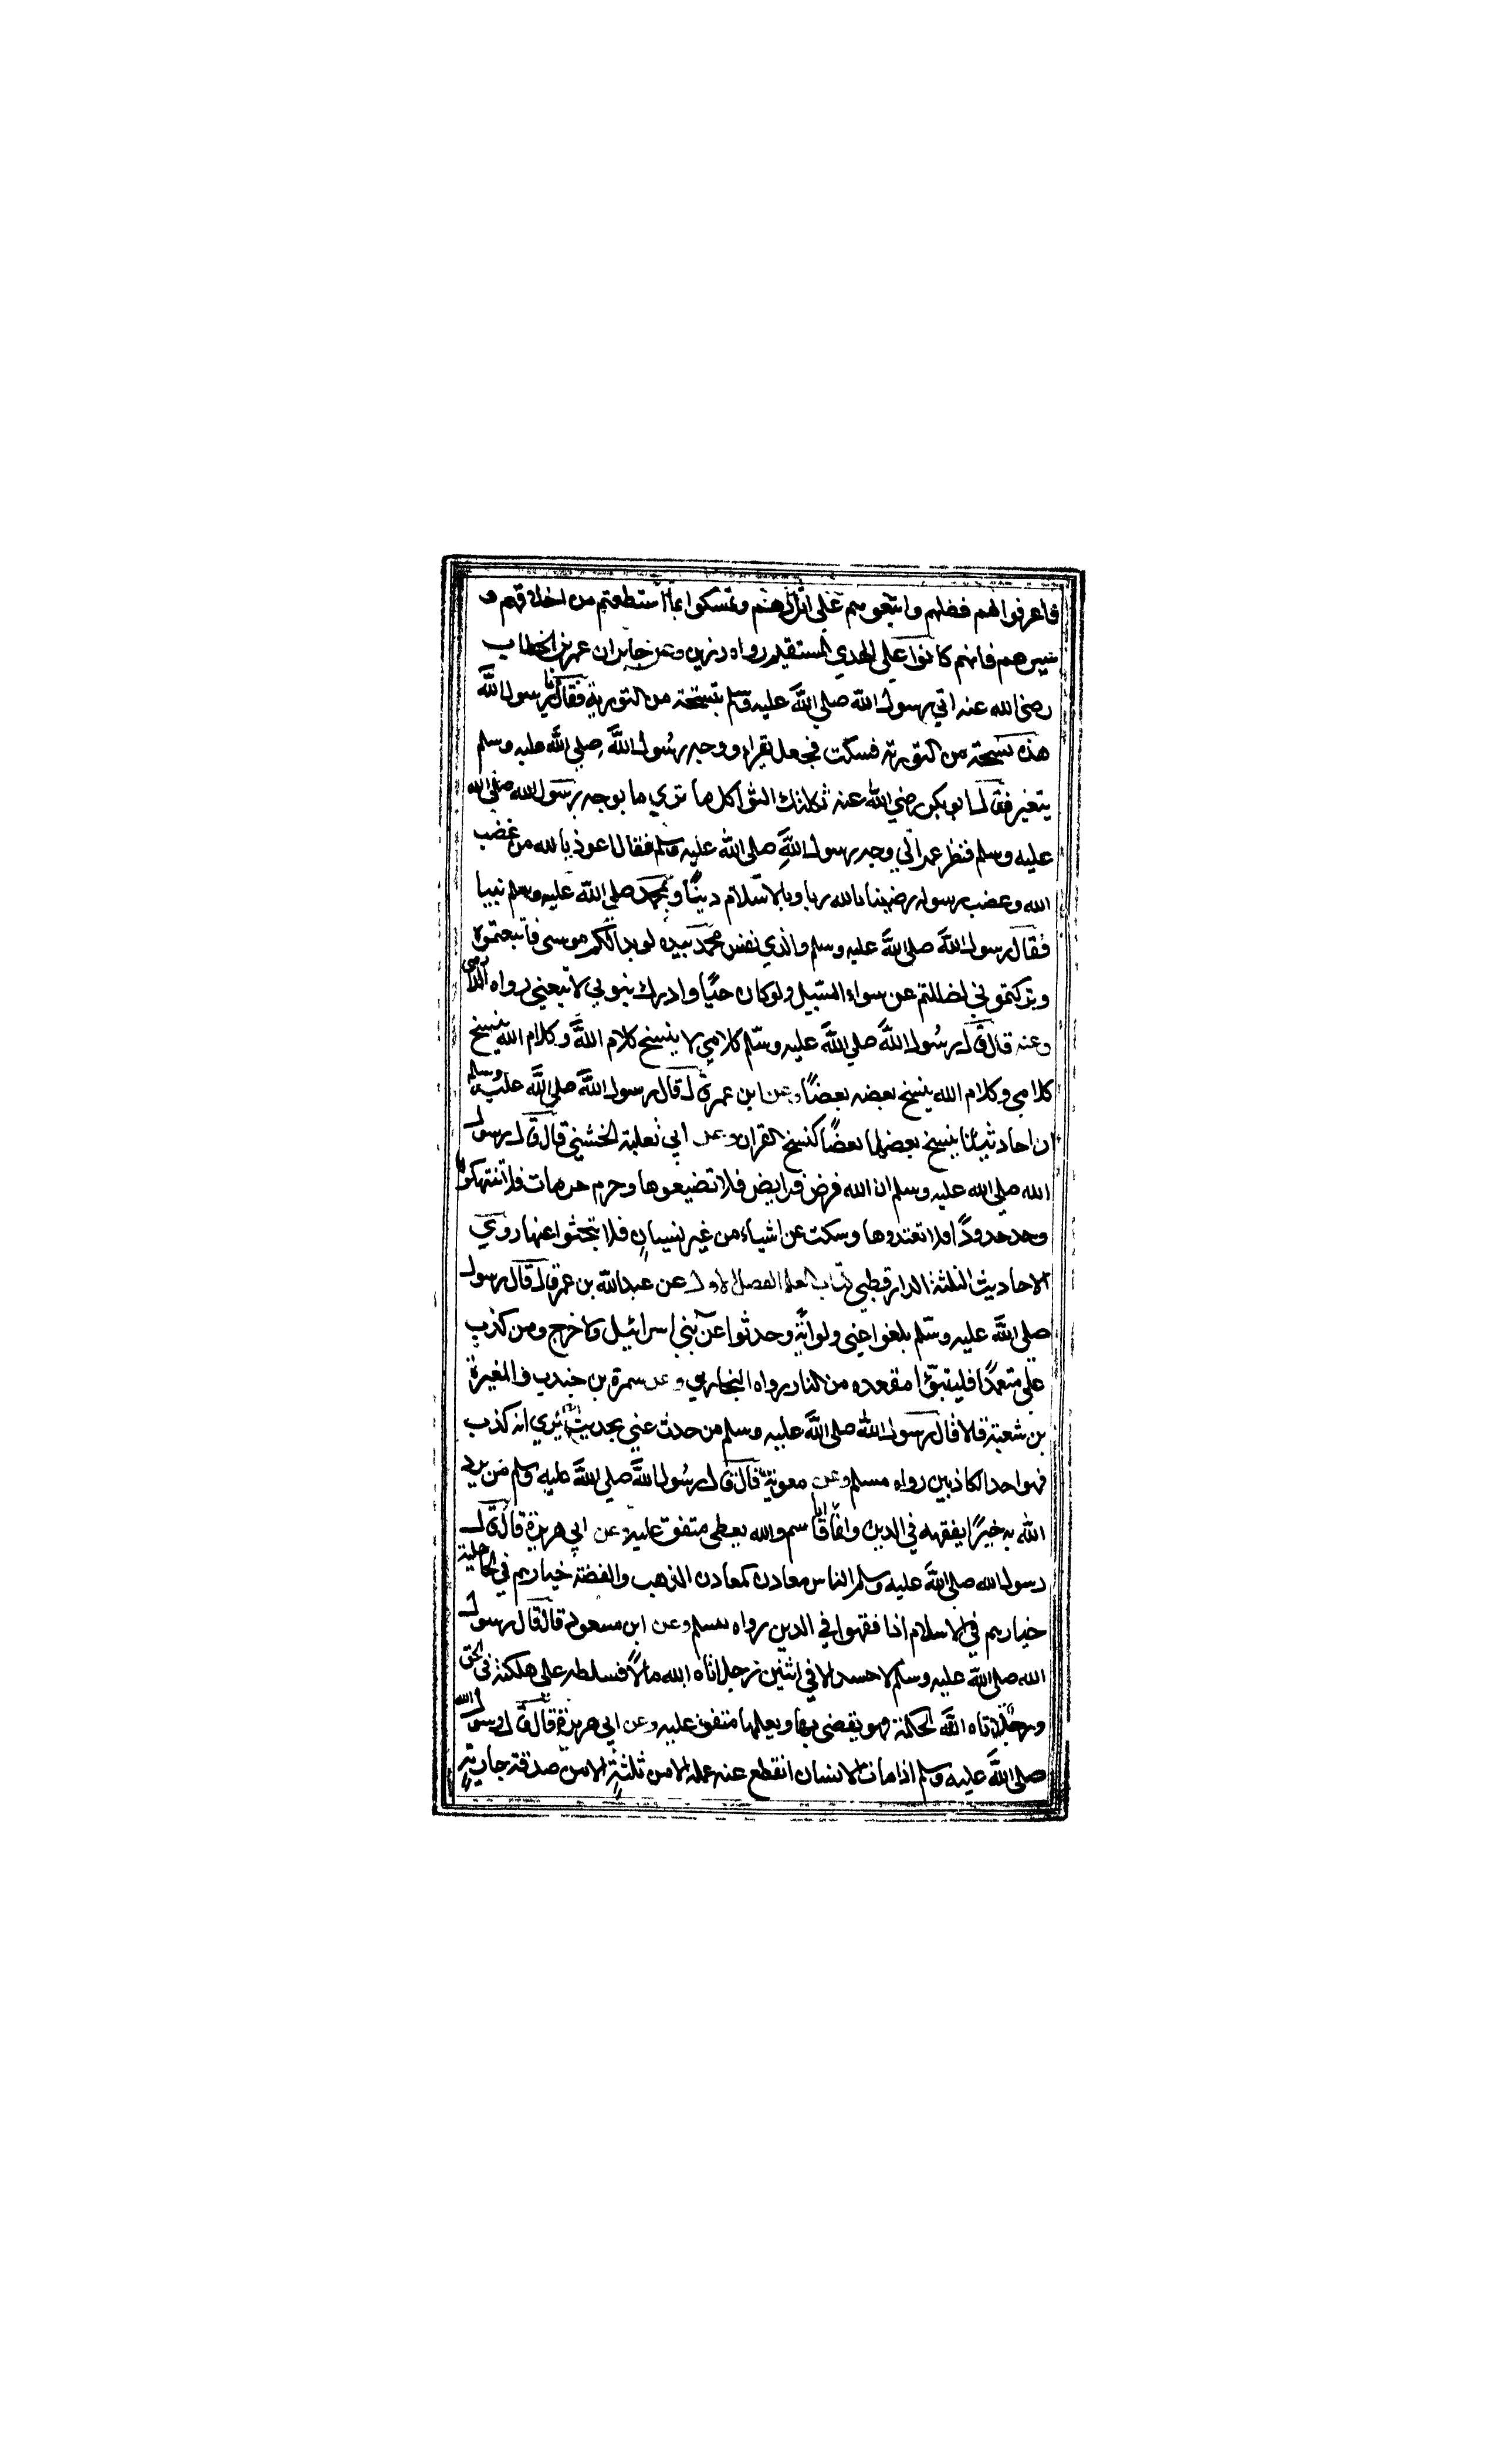 فاعرفوا لهم فضلهم واتبعوهم على اثارهم وتمسكوا بما استطعتم من اخلاقهم و
سيرهم فانهم كانوا على الهدي المستقيم رواه رزين وعن جابر ان عمر بن الخطاب
رضي الله عنه اتي رسول الله صلي الله عليه وسلم بنسخة من التورية فقال يا رسول الله
هذه نسخة من التورية فسكت فجعل يقراء ووجه رسول الله صلي الله عليه وسلم
يتغير فقال ابوبكر رضي الله عنه ثكلتك الثواكل ما تري ما بوجه رسول الله صلي الله
عليه وسلم فنظر عمر الي وجه رسول الله صلي الله عليه وسلم فقال اعوذ بالله من غضب
الله وغضب رسوله رضينا بالله ربا وبالاسلام دينًا وبمحمد صلي الله عليه وسلم نبيا
فقال رسول الله صلي الله عليه وسلم والذي نفس محمد بيده لو بدا لكم موسى فاتبعتموه
وتركتموني لضللتم عن سواء السبيل ولو كان حيًا وادرك نبوتي لاتبعني رواه الدارمي
وعنه قال قال رسول الله صلي الله عليه وسلم كلامي لا ينسخ كلام الله وكلام الله ينسخ
كلامي وكلام الله ينسخ بعضه بعضًا وعن ابن عمر قال قال رسول الله صلي الله عليه وسلم
ان احاديثنا ينسخ بعضها بعضًا كنسخ القران وعن ابي ثعلبة الخشني قال قال رسول
الله صلي الله عليه وسلم ان الله فرض فرايض فلا تضيعوها وحرم حرمات فلا تنتهكوها
وحد حدودًا فلا تعتدوها وسكت عن اشياء من غير نسيان فلا تبحثوا عنها روي
الاحاديث الثلثة الدارقطني كتاب العلم الفصل الاول عن عبدالله بن عمر قال قال رسول
صلي الله عليه وسلم بلغوا عني ولو اية وحدثوا عن بني اسرائيل ولا حرج ومن كذب
علي متعمدًا فليتبوّا مقعده من النار رواه البخاري وعن سمرة بن جندب والمغيرة
بن شعبة قالا قال رسول الله صلي الله عليه وسلم من حدث عني بحديث يري انه كذب
فهو احد الكاذبين رواه مسلم وعن معوية قال قال رسول الله صلي الله عليه وسلم من يرد
الله به خيرًا يفقهه في الدين وانما انا قاسم والله يعطي متفق عليه وعن ابي هريرة قال قال
رسول الله صلي الله عليه وسلم الناس معادن كمعادن الذهب والفضة خيارهم في الجاهلية
خيارهم في الاسلام اذا فقهوا في الدين رواه مسلم وعن ابن مسعود قال قال رسول
الله صلي الله عليه وسلم لا حسد الا في اثنين رجل اتاه الله مالًا فسلطه على هلكته في الحق
ورجل اتاه الله الحكمة فهو يقضي بها ويعلمها متفق عليه وعن ابي هريرة قال قال رسول الله
صلي الله عليه وسلم اذا مات الانسان انقطع عنه عمله الا من ثلثةٍ الا من صدقة جاريةٍ